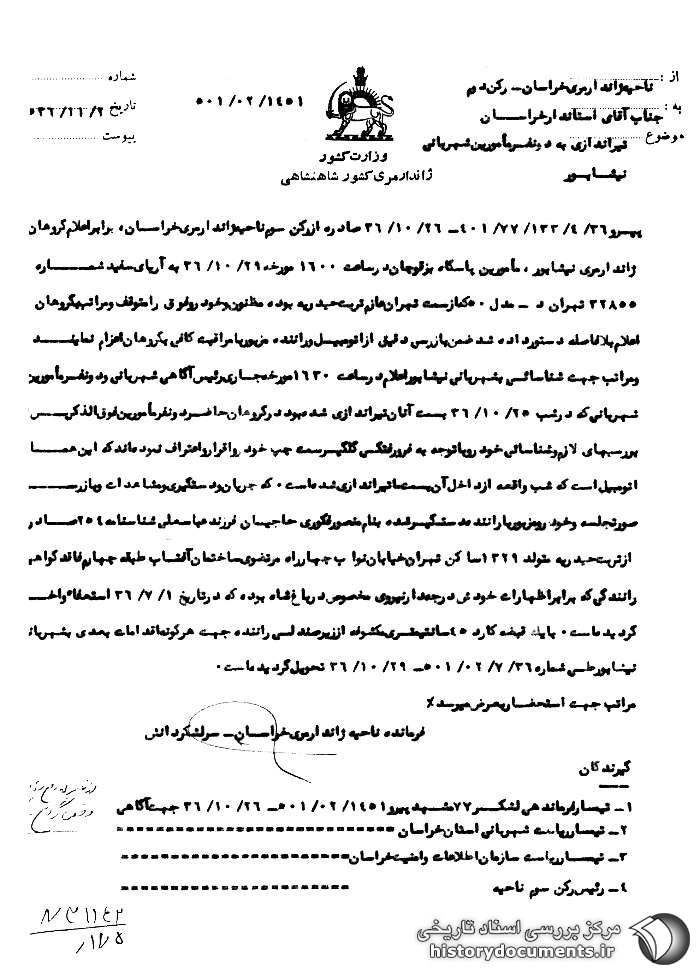 از : ناحیه ژاندارمری خراسان – رکن دوم
به : جناب آقای استاندار خراسان
موضوع : تیراندازی به دونفر مأمورین شهربانی
نیشابور
۵۰۱/۰۲/۱۴۵۱
وزارت کشور
ژاندارمری کشور شاهنشاهی
شماره
تاریخ
پیوست
پیرو ۳۶/۴/۱۳۳/۷۷/۴۰۱ – ۳۶/۱۰/۲۶ صادره از رکن سوم ناحیه ژاندارمری خراسان ، برابر اعلام گروهان
ژاندارمری نیشابور ، مأمورین پاسگاه بزقوچان در ساعت ۱۶۰۰ مورخه ۳۶/۱۰/۲۹ به آریای سفید شماره
۳۲۸۵۵ تهران د – مدل ۵۰ که از سمت تهران عازم تربت حیدریه بوده مظنون و خودرو فوق را متوقف و مراتب بگروهان
اعلام بلافاصله دستور داده شد ضمن بازرسی دقیق از اتومبیل و راننده مزبور با مراقبت کافی بگروهان اعزام نمایند
و مراتب جهت شناسائی بشهربانی نیشابور اعلام در ساعت ۱۶۳۰ مورخه جاری رئیس آگاهی شهربانی و دونفر مأمورین
شهربانی که در شب ۳۶/۱۰/۲۵ بسمت آنان تیراندازی شده بود در گروهان حاضر و دونفر مأمورین فوق الذکر پس
بررسیهای لازم و شناسائی خودرو با توجه به فرورفتگی گلگیر سمت چپ خودرو اقرار و اعتراف نموده اند که این همان
اتومبیل است که شب واقعه از داخل آن بسمت ما تیراندازی شده است ۰ که جریان و دستگیری و مشاهدات و بازرسی
صورتجلسه و خودرو مزبور با راننده دستگیر شده بنام منصور فکوری حاجیمان فرزند عباسعلی شناسنامه ۲۵۴ صادر
از تربت حیدریه متولد ۱۳۲۹ ساکن تهران خیابان نواب چهارراه مرتضوی ساختمان آفتاب طبقه چهارم فاقد گواهی
رانندگی که برابر اظهارات خودش درجه دار نیروی مخصوص در باغ شاه بوده که در تاریخ ۳۶/۷/۱ استعفاء و اخـ
گردیده است ۰ با یک قبضه کارد ۴۵ سانتیمتری مکشوفه از زیر صندلی راننده جهت هرگونه اقدامات بعدی بشهربانی
نیشابور طی شماره ۳۶/۷/۰۲/۵۰۱ – ۳۶/۱۰/۲۹ تحویل گردیده است ۰
مراتب جهت استحضار بعرض میرسد ٪
فرمانده ناحیه ژاندارمری خراسان – سرلشکر دانش
گیرندگان
۱ – تیمسار فرماندهی لشکر ۷۷ مشهد پیرو ۵۰۱/۰۲/۱۴۵۱ – ۳۶/۱۰/۲۶ جهت آگاهی
۲ – تیمسار ریاست شهربانی استان خراسان
۳ – تیمسار ریاست سازمان اطلاعات و امنیت خراسان
۴ – رئیس رکن سوم ناحیه
مرکز بررسی اسناد تاریخی
historydocuments.ir